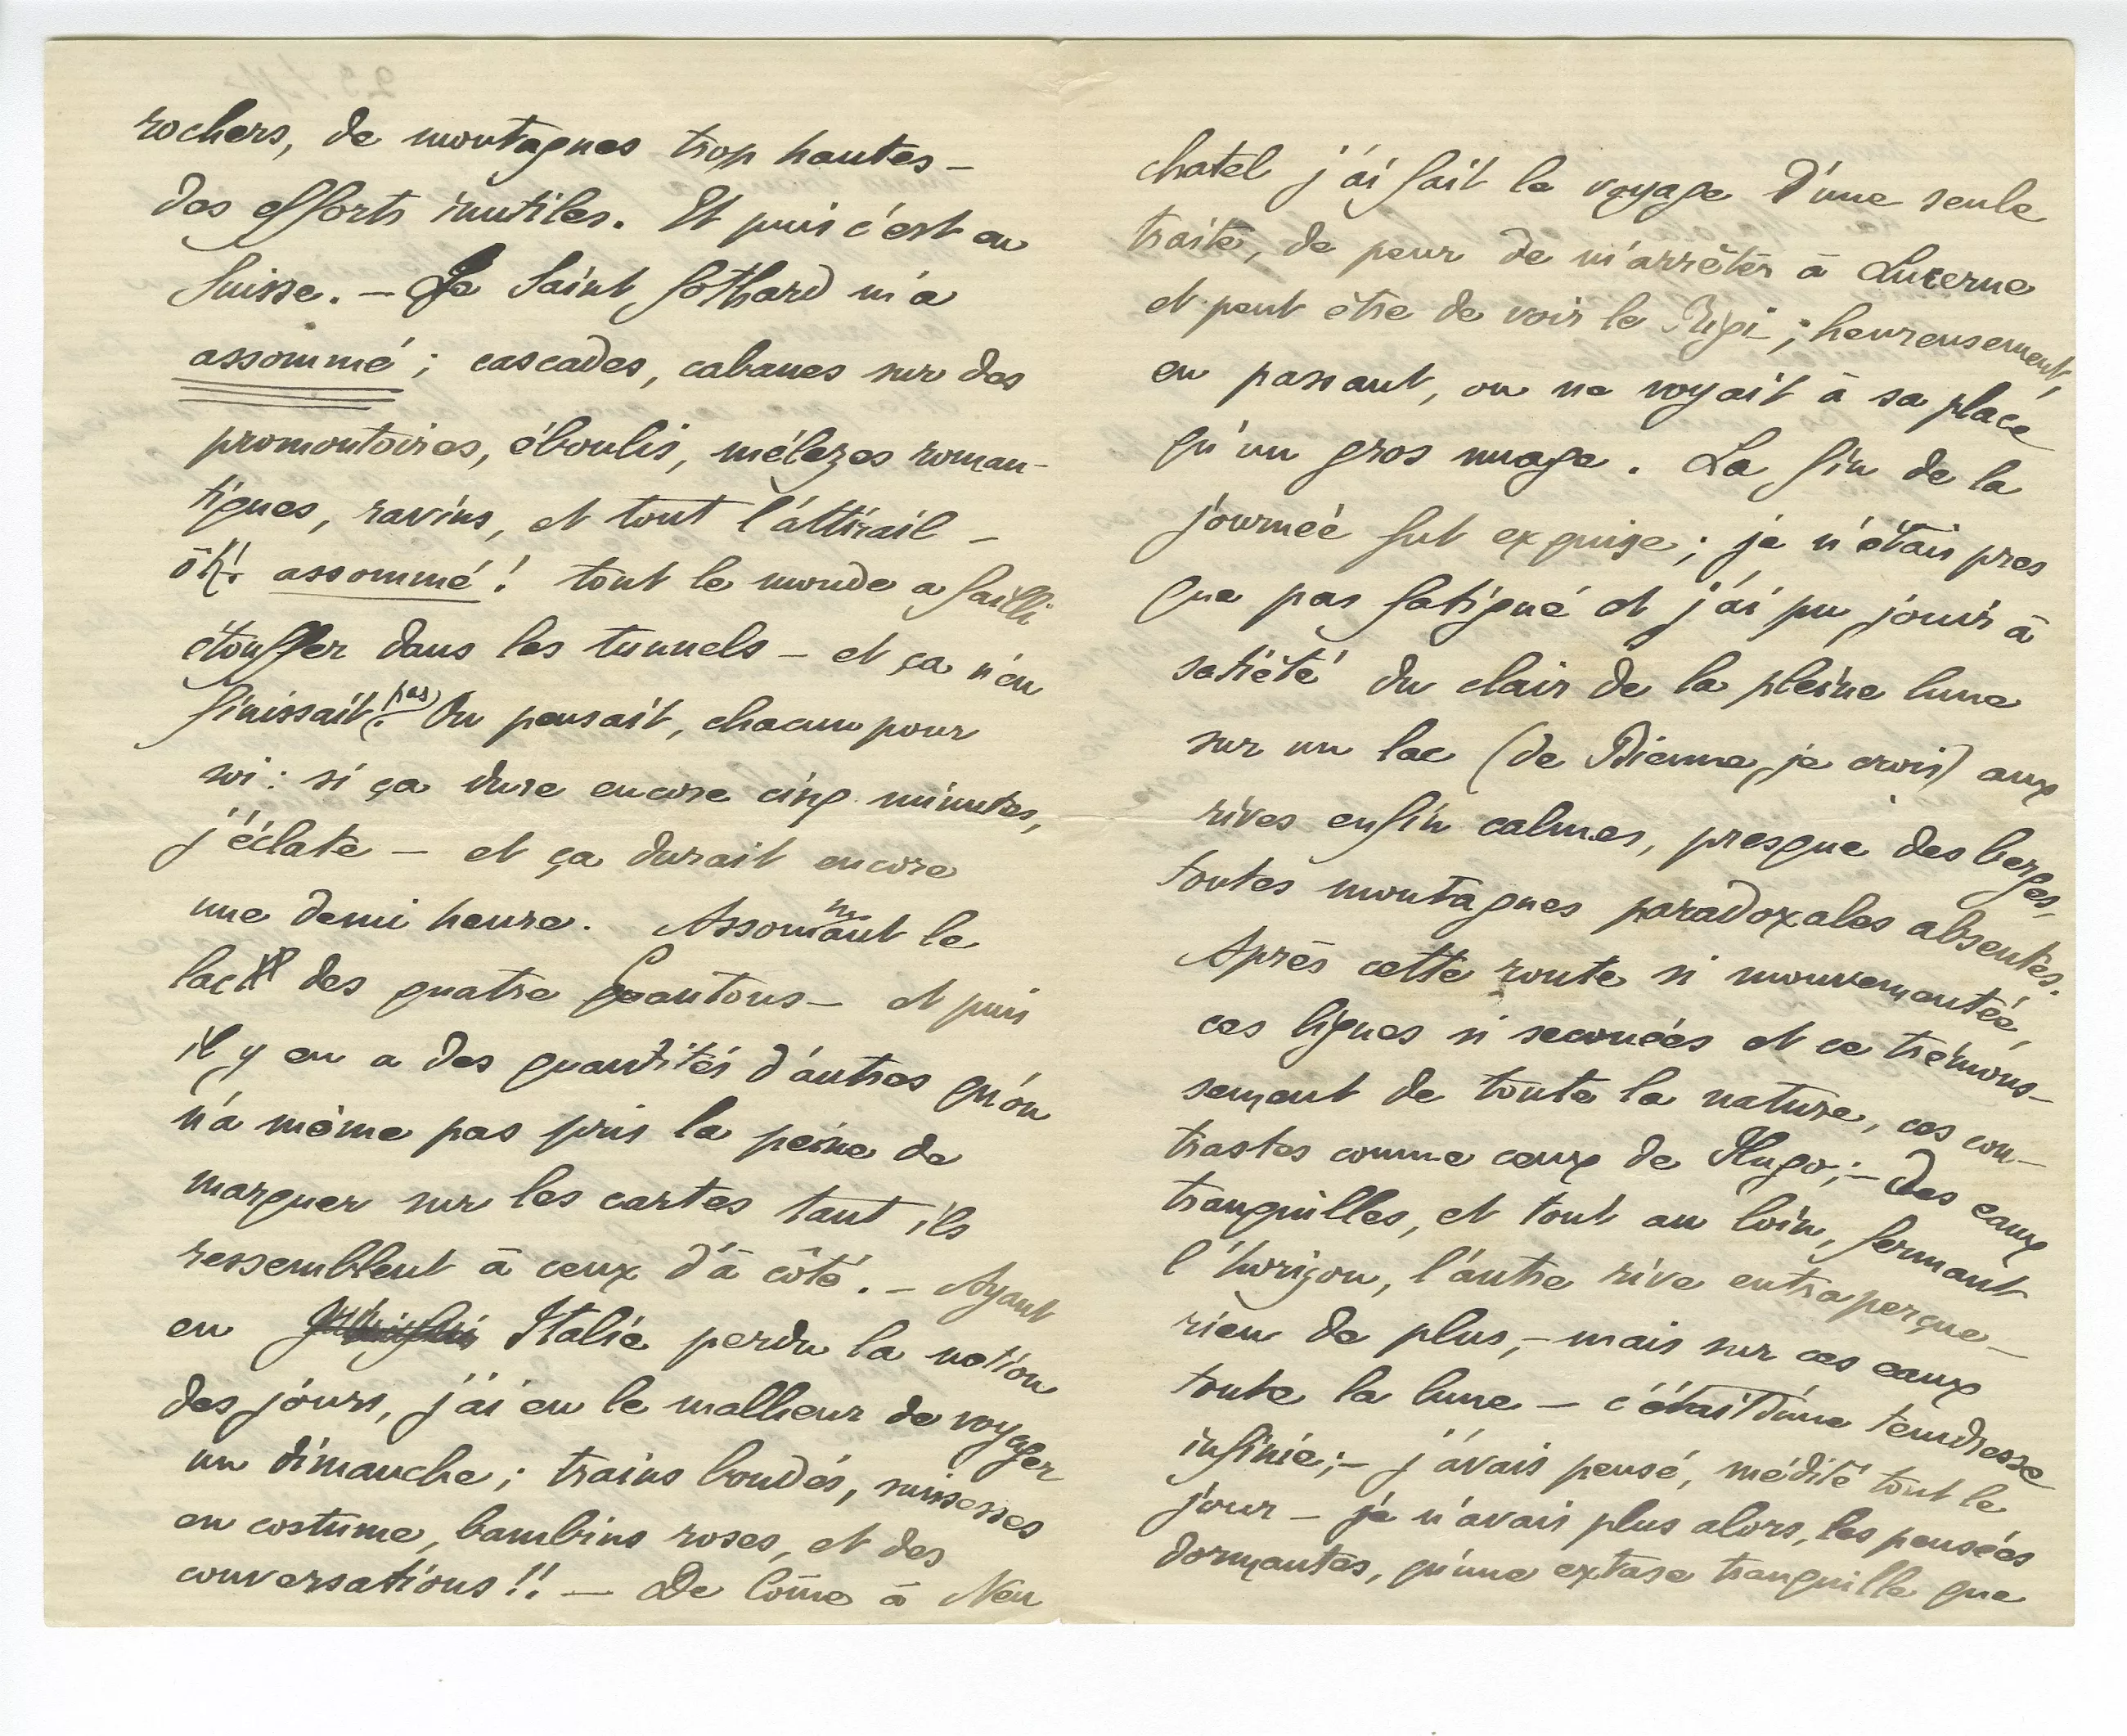 rochers, de montagnes trop hautes –
des efforts inutiles. Et puis c'est en
Suisse. – Le Saint Gothard m'a
assommé ; cascades, cabanes sur des
promontoires, éboulis, mélezes roman-
tiques, ravins, et tout l'attirail –
oh! assommé ! tout le monde a failli
étouffer dans les tunnels – et ça n'en
finissait pas. On pensait, chacun pour
soi : si ça dure encore cinq minutes,
j'éclate – et ça durait encore
une demi heure. Assommant le
lac des quatre Cantons – et puis
il y en a des quantités d'autres qu'on
n'a même pas pris la peine de
marquer sur les cartes tant ils
ressemblent à ceux d'à côté. – Ayant
en Italie perdu la notion
des jours, j'ai eu le malheur de voyager
un dimanche ; trains bondés, suissesses
en costume, bambins roses, et des
conversations !! – De Côme à Neu
chatel j'ai fait le voyage d'une seule
traite, de peur de m'arrêter à Lucerne
et peut être de voir le Rigi ; heureusement,
en passant, on ne voyait à sa place
qu'un gros nuage. La fin de la
journée fut exquise ; je n'étais pres
que pas fatigué et j'ai pu jouir à
satiété du clair de la pleine lune
sur un lac (de Bienne, je crois) aux
rives enfin calmes, presque des berges,
toutes montagnes paradoxales absentes.
Après cette route si mouvementée,
ces lignes si secouées et ce trémous-
sement de toute la nature, ces con-
trastes comme ceux de Hugo ; – des eaux
tranquilles, et tout au loin, fermant
l'horizon, l'autre rive entraperçue –
rien de plus, – mais sur ces eaux
toute la lune – c'était d'une tendresse
infinie ; – j'avais pensé, médité tout le
jour – je n'avais plus alors, les pensées
dormantes, qu'une extase tranquille que